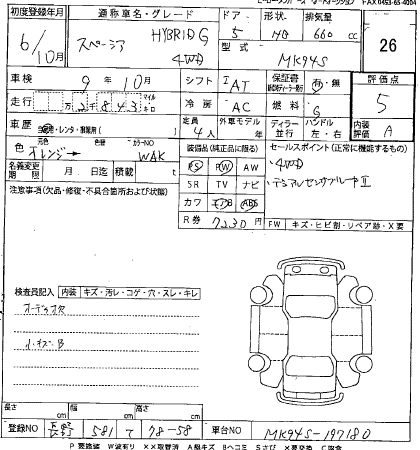 FAX 0463-65-4004
初度登録年月 通称車名・グレード ドア 形状 排気量
6/10月 スペーシア HYBRID G 4WD 5 HB 660 cc 26
型式 MK94S
車検 9年10月 シフト IAT 保証書 有・無 評価点 5
走行 2843 マイル キロ 冷房 AC 燃料 G
車歴 自家用・レンタ・事業用( ) 定員 4人 外車モデル 年 ディーラー 並行 ハンドル 左・右 内装評価 A
色 元色 オレンジ→ 色 カラーNO WAK 装備品(純正品に限る) セールスポイント(正常に機能するもの)
名義変更期限 月 日迄 積載 t PS PW AW ・4WD
SR TV ナビ ・デュアルセンサブレーキⅡ
注意事項(欠品・修復・不具合箇所および状態) カワ エアB ABS
R券 7230円 FW キズ・ヒビ割・リペア跡・X要
検査員記入 内装 キズ・汚レ・コゲ・穴・スレ・キレ
オーディオ欠
小キズ B
長さ cm 幅 cm 高さ cm
登録NO 581 て 78-58 車台NO MK94S-197180
P 要塗装 W波有り XX取替済 A傷キズ Bヘコミ Sさび X要交換 C腐食